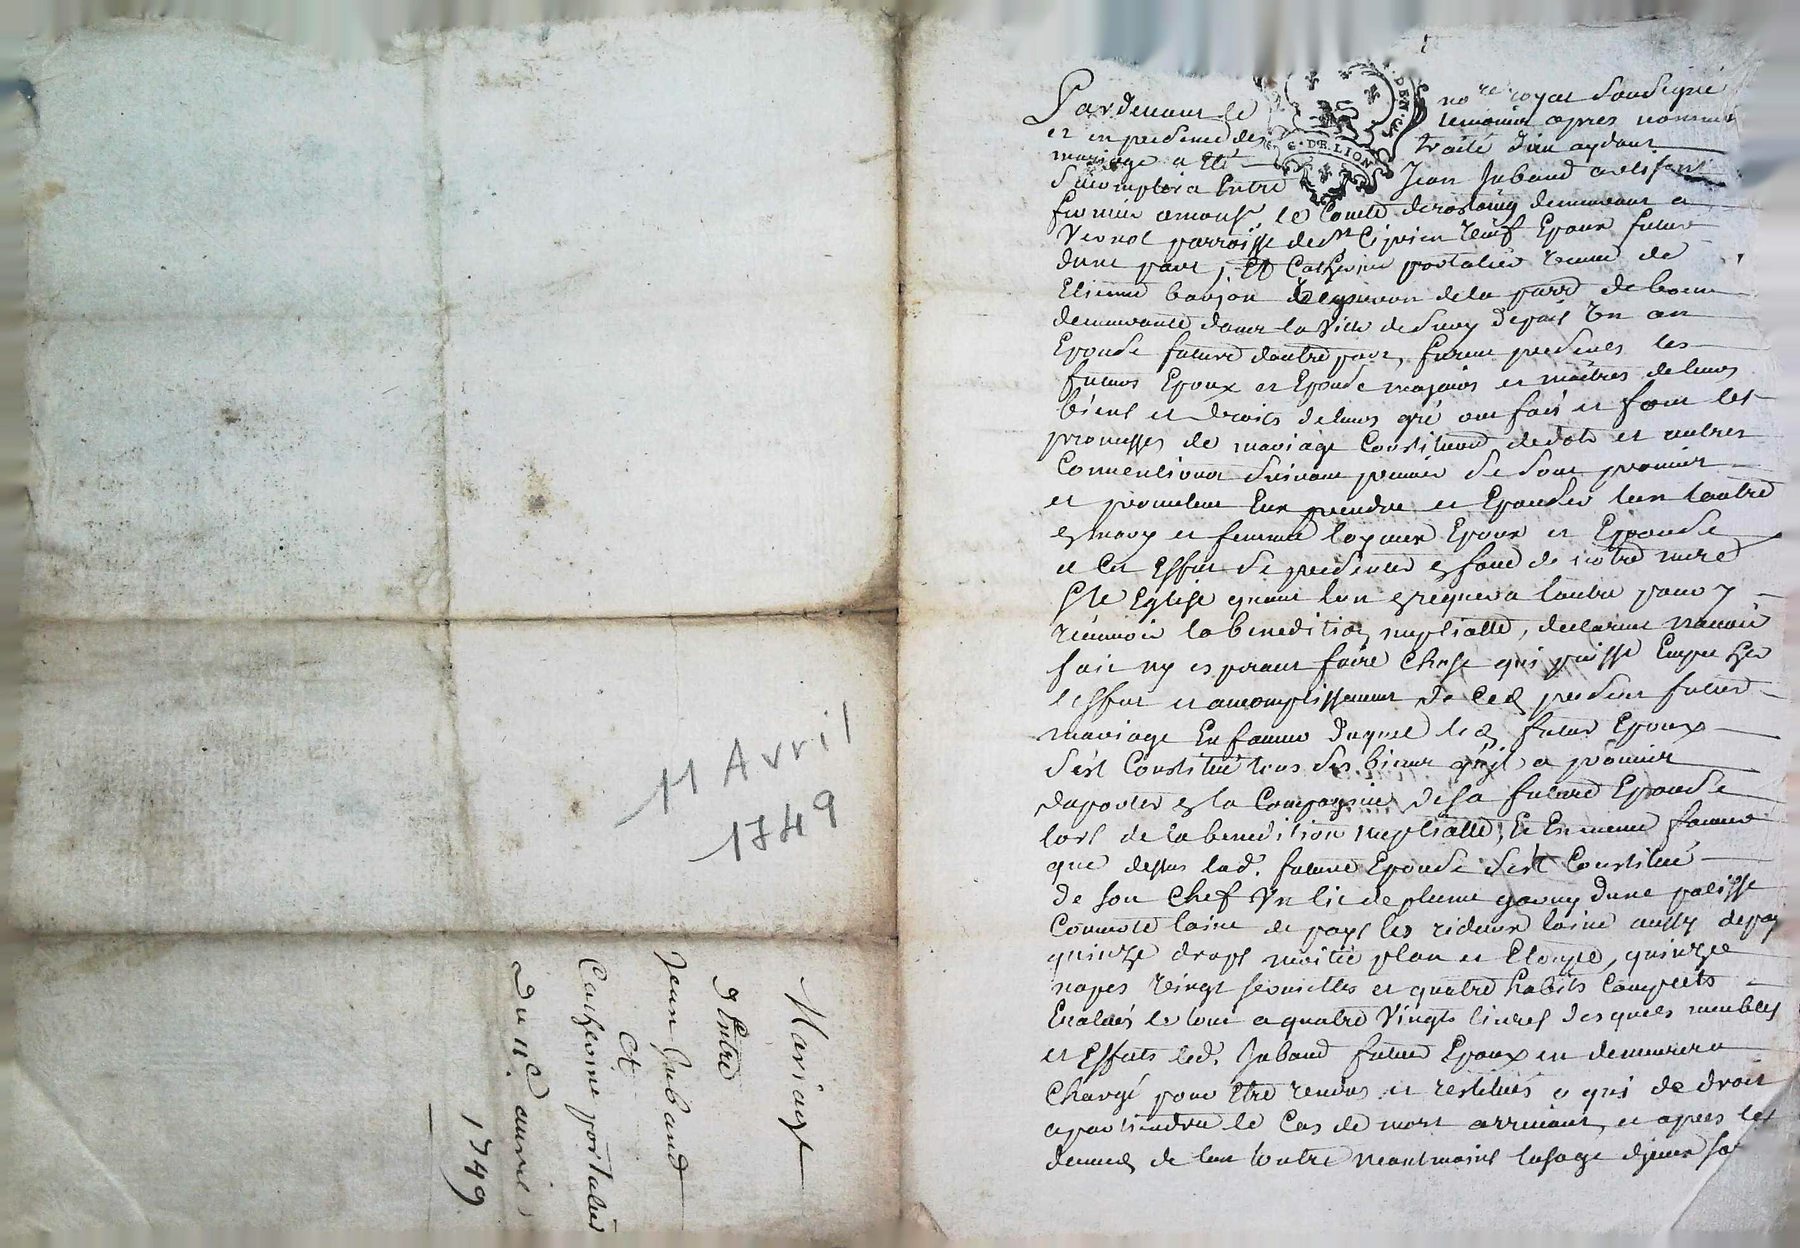 11 Avril
1749
Mariage
d'Entre
Jean Jubaud
Et
Catherine portalier
Du 11e avril
1749
DEN. G. DE. LION
Pardevant le nore royal Soussigné
et en presence des temoins apres nommés
mariage a Eté traité dieu aydant
Sacomplira Entre Jean Jubaud
fermier amonsr le Comte demeurant a
parroisse de St Ciprien veuf Epoux futur
dune part, Et Catherine portalier veuve de
Etienne de la parr
demeurante dans la Ville de depuis Un an
Epouse future dautre part, furent presents les
futurs Epoux et Epouse majeurs et maitres de leurs
biens et droits de leurs gré ont fait et font les
promesses de mariage Constituond de dote et autres
Conventions Suivant premier Se Sont promis
et promettent prendre et Epouser lun lautre
en mary et femme loyaux Epoux et Epouse
a Cet Effet Se presenter en face de notre mere
Ste Eglise quant lun requera lautre pour y
recevoir la benedition nuptialle, declarant navoir
fait ny esperant faire Chose qui puisse Empecher
leffet et accomplissement de Ced present futur
mariage En faveur duquel led futur Epoux
Sést Constitué tous Ses biens quil a promis
daporter en la Compagnie de Sa future Epouse
lors de la benedition nuptialle, Et En meme faveur
que dessus lad. future Epouse Sést Constitué
de Son Chef Un lit de plume garny dune palisse
Couverte laine de pays les rideaux laine aussy de pay
quinze draps moitié plan et Etoupe, quinze
napes Vingt serviettes et quatre habits Complets
Evalués le tout a quatre Vingts livres desquels meubles
et Effets led. Jubaud futur Epoux en demeurera
Chargé pour être rendus et restitués a qui de droit
apartiendra le Cas de mort arrivant, et apres le
de lun lautre neantmoins